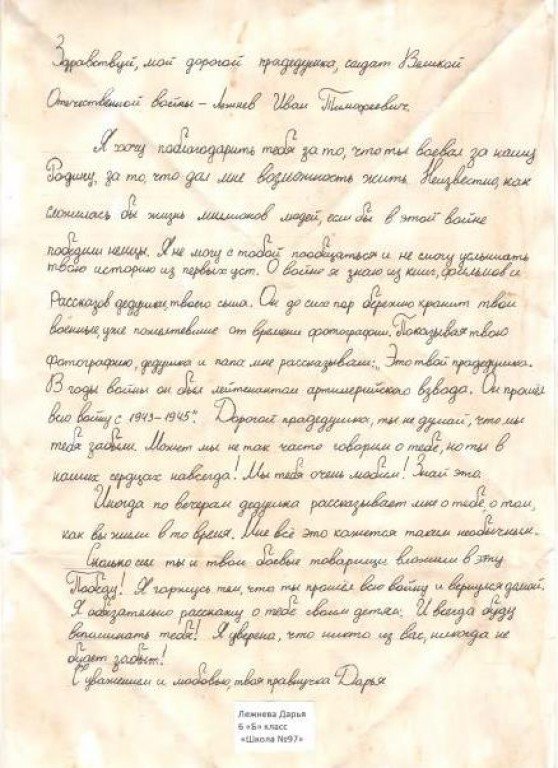 Здравствуй, мой дорогой прадедушка, солдат Великой
Отечественной войны – Лежнев Иван Тимофеевич.
Я хочу поблагодарить тебя за то, что ты воевал за нашу
Родину, за то, что дал мне возможность жить. Неизвестно, как
сложилась бы жизнь миллионов людей, если бы в этой войне
победили немцы. Я не могу с тобой пообщаться и не смогу услышать
твою историю из первых уст. О войне я знаю из книг, фильмов и
Рассказов дедушки, твоего сына. Он до сих пор бережно хранит твои
военные, уже пожелтевшие от времени фотографии. Показывая твою
фотографию, дедушка и папа мне рассказывали: „Это твой прадедушка.
В годы войны он был лейтенантом артиллерийского взвода. Он прошёл
всю войну с 1943-1945". Дорогой прадедушка, ты не думай, что мы
тебя забыли. Может мы не так часто говорим о тебе, но ты в
наших сердцах навсегда! Мы тебя очень любим! Знай это.
Иногда по вечерам дедушка рассказывает мне о тебе, о том,
как вы жили в то время. Мне всё это кажется таким необычным.
Сколько сил ты и твои боевые товарищи вложили в эту
Победу! Я горжусь тем, что ты прошёл всю войну и вернулся домой.
Я обязательно расскажу о тебе своим детям. И всегда буду
вспоминать тебя! Я уверена, что никто из вас, никогда не
будет забыт!
С уважением и любовью, твоя правнучка Дарья
Лежнева Дарья
6 «Б» класс
«Школа №97»